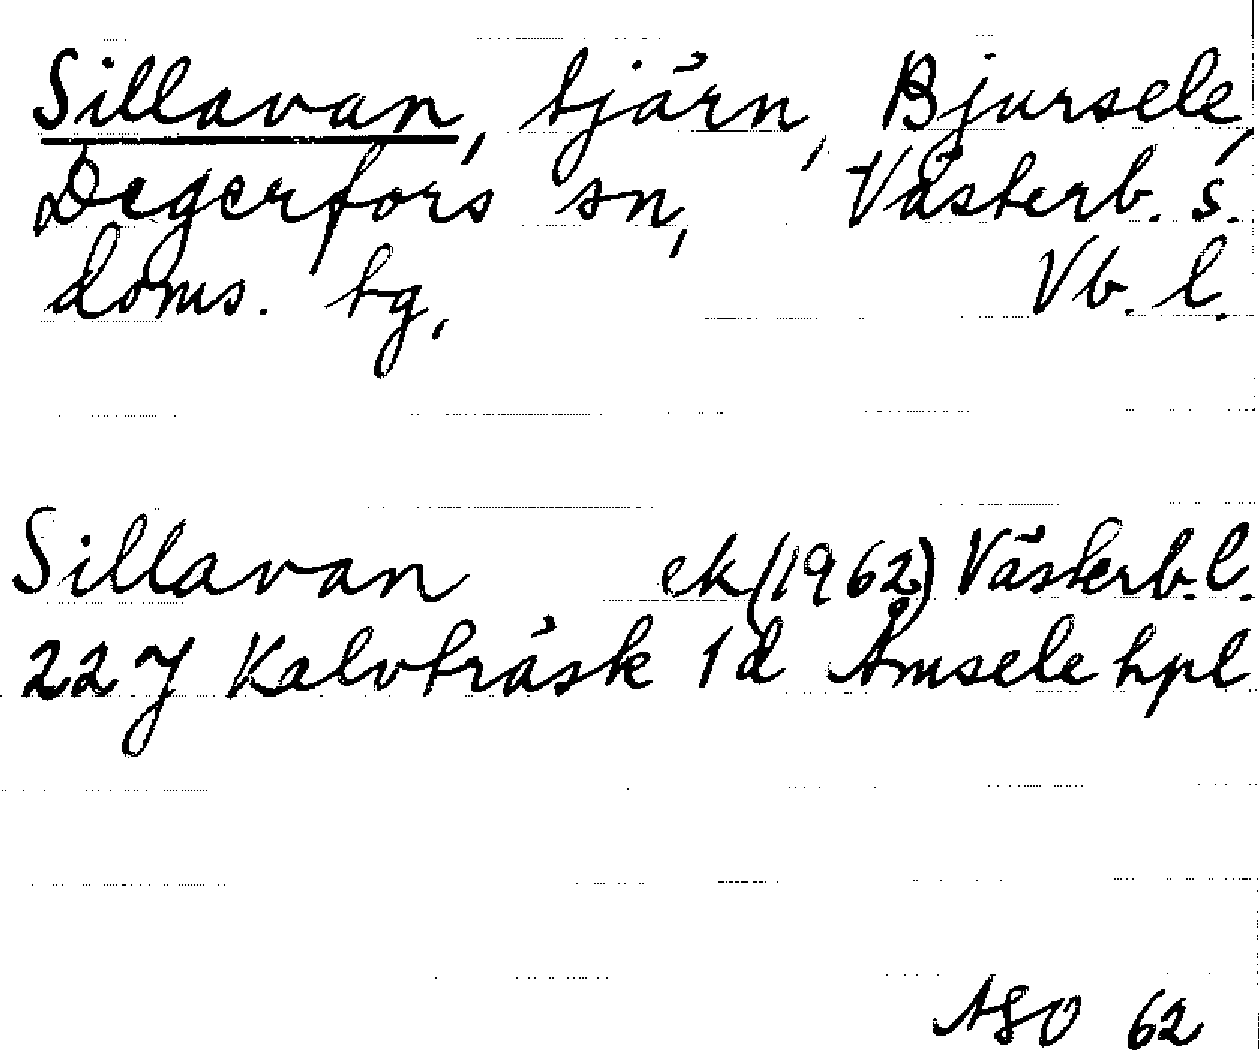 Sillavan, tjärn, Bjursele,
Degerfors sn, Västerb. s.
doms. tg, Vb. l.
Sillavan ek (1962) Västerb. l.
22 J Kalvträsk 1 d Åmsele hpl
ASO 62